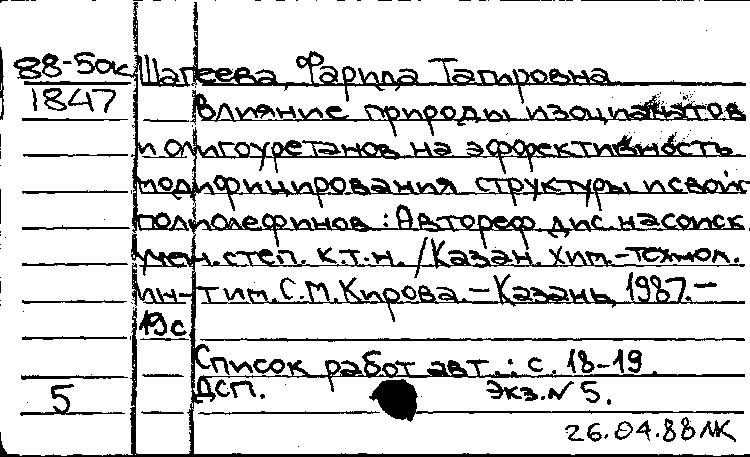 88-5ок Шагеева, Фарида Тагировна
1847 Влияние природы изоцианатов
и олигоуретанов на эффективность
модифицирования структуры и свойств
полиолефинов: Автореф. дис. на соиск.
учен. степ. к.т.н. / Казан. хим.-технол.
ин-т им. С.М. Кирова. – Казань, 1987. –
19 с.
Список работ авт.: с. 18-19.
5 ДСП. Экз. N 5.
26.04.88 ЛК